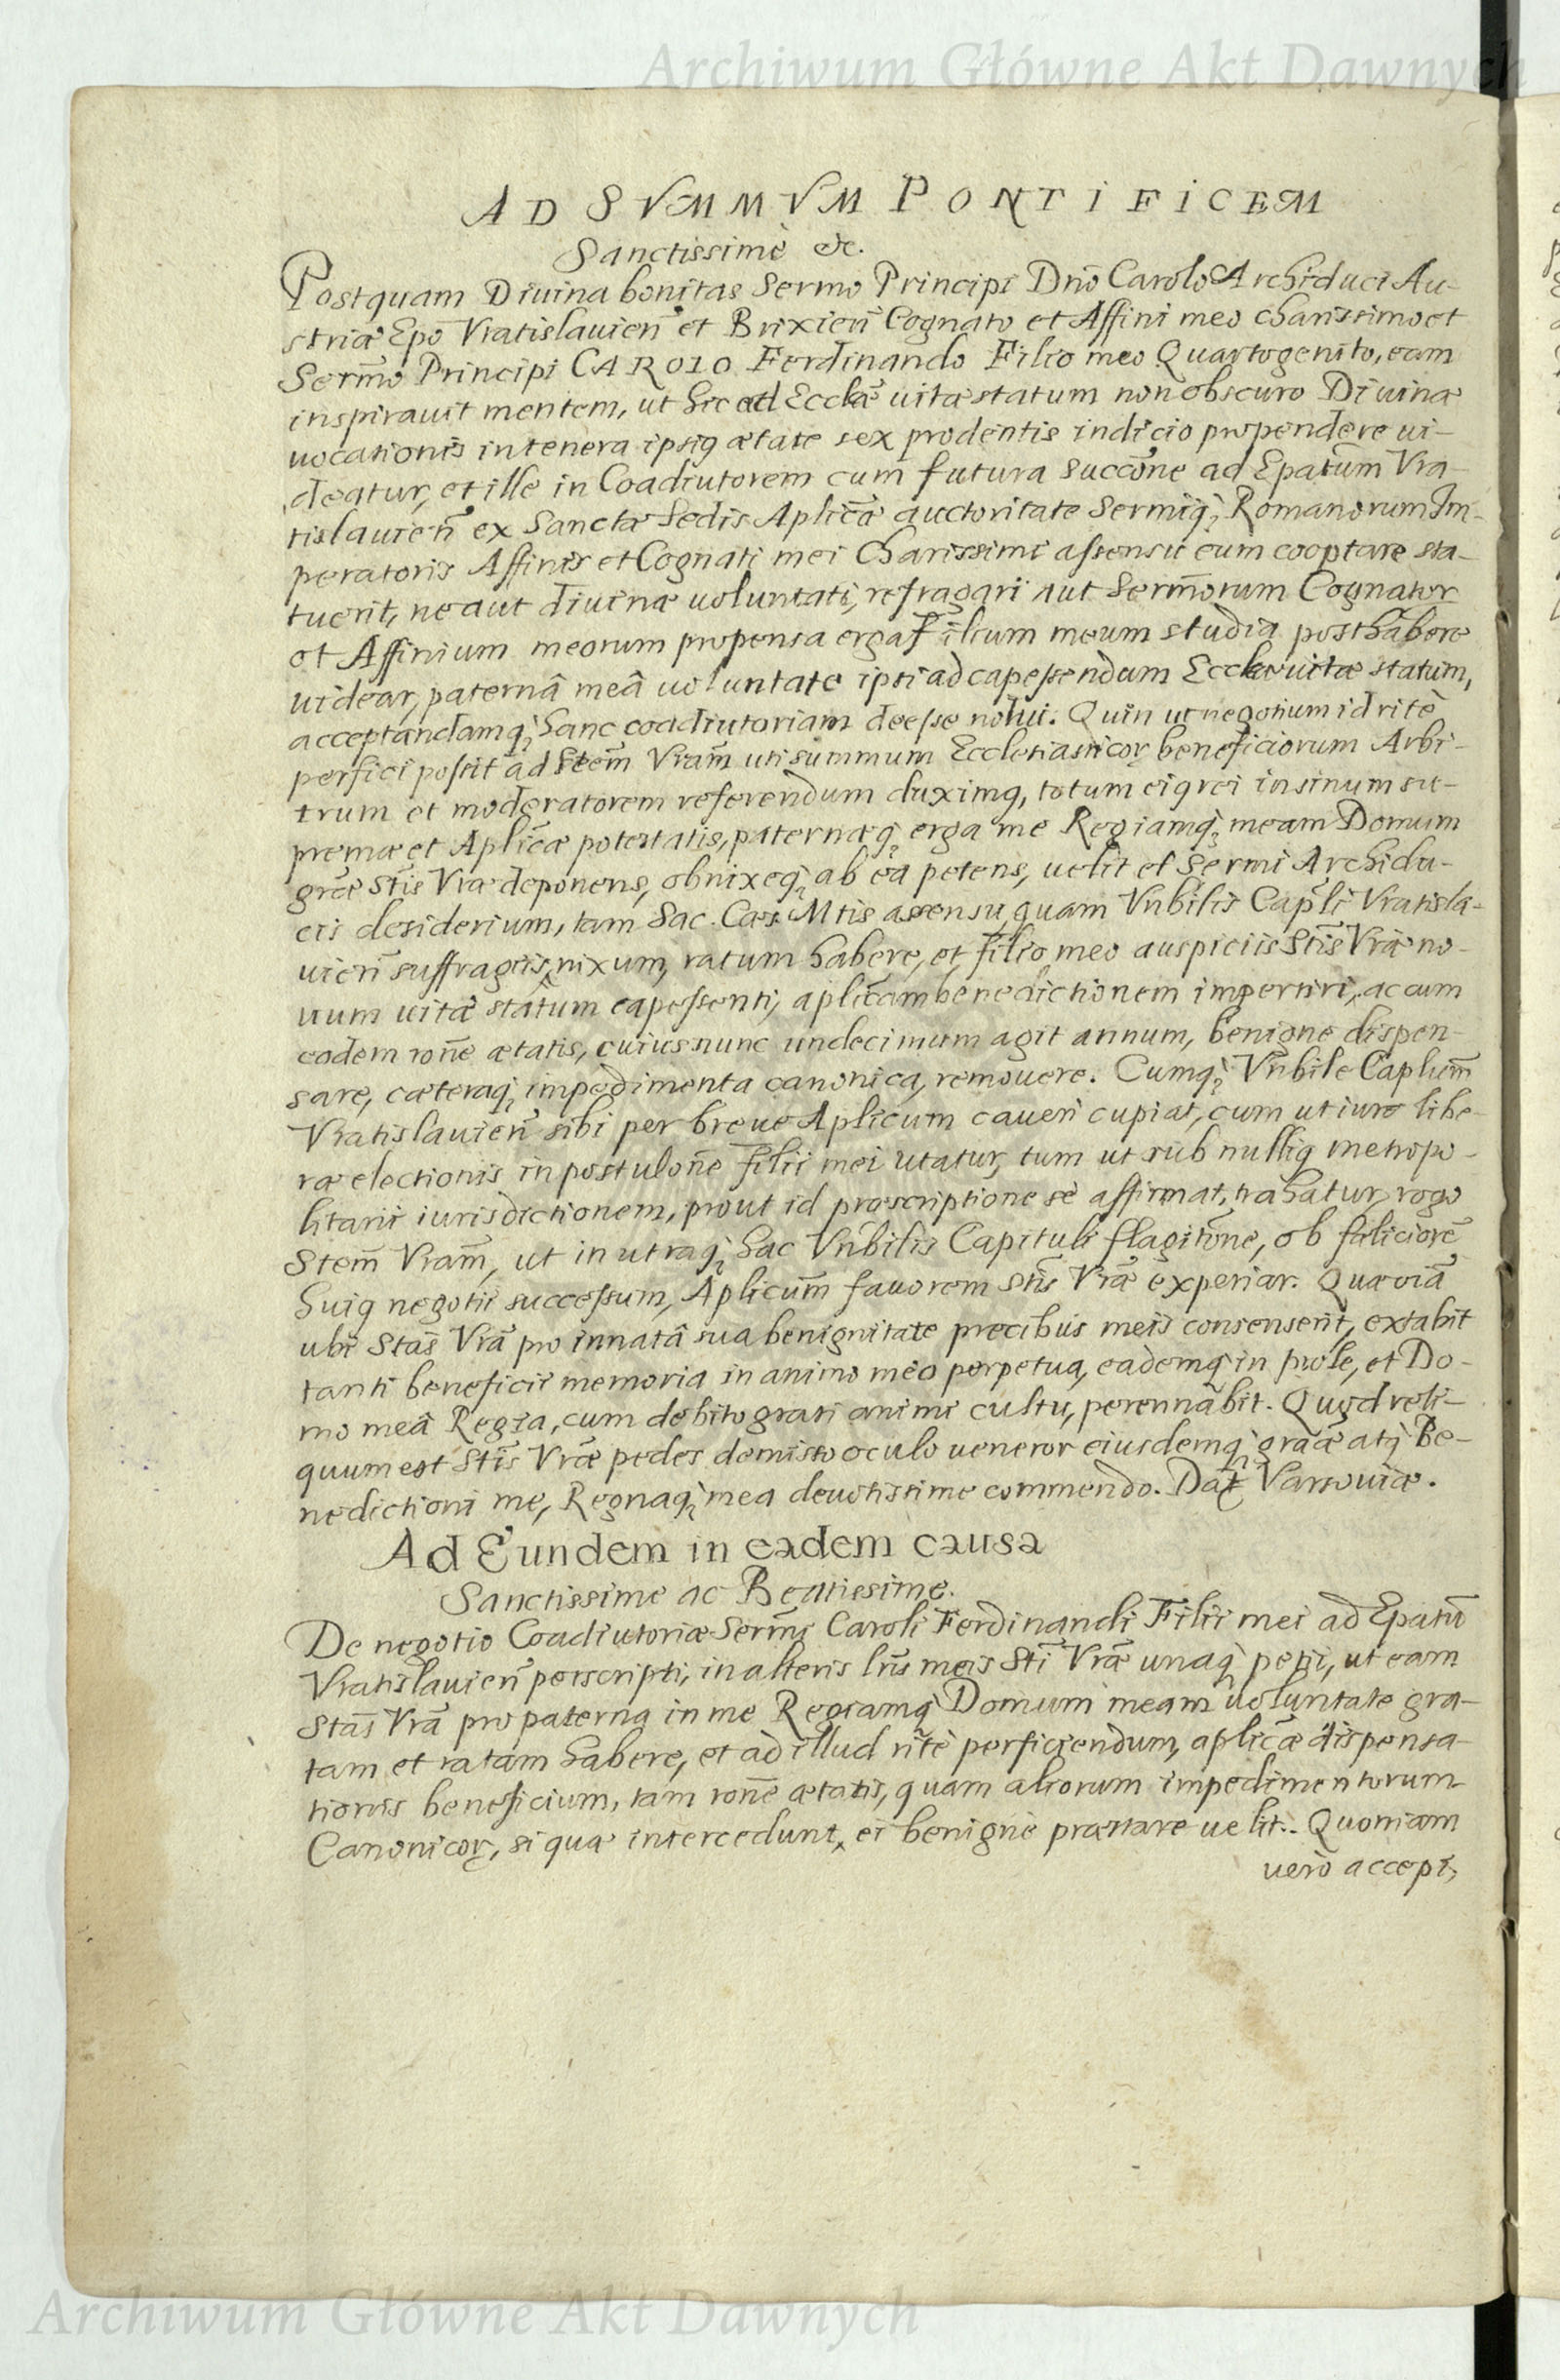 Archiwum Główne Akt Dawnych
AD SVMMVM PONTIFICEM
Sanctissimè &c.
Postquam Diuina bonitas Sermo Principi Dnō Carolo Archiduci Au-
striæ Epō Vratislauien̄ et Brixien̄ Cognato et Affini meo charissimo et
Serm̄o Principi CAROLO Ferdinando Filio meo Quartogenito, eam
inspirauit mentem, ut hic ad Eccłæ uitæ statum non obscuro Diuinæ
uocationis in tenera ipsiq ætate sex prodentis indicio propendere ui-
deatur, et ille in Coadiutorem cum futura Succōne ad Epatum Vra-
tislauien̄ ex Sanctæ Sedis Aplicæ auctoritate Sermiq; Romanorum Im-
peratoris Affinis et Cognati mei Charissimi assensu eum cooptare sta-
tuerit, ne aut diuinæ uoluntati, refragari aut Serm̄orum Cognator
et Affinium meorum propensa erga Filium meum studia posthabere
uidear, paternâ meâ uoluntate ipsi ad capessendum Eccłæ uitæ statum,
acceptandamq; hanc coadiutoriam deesse nolui. Quin ut negotium id ritè
perfici possit ad Stem̄ Vram̄ uti summum Ecclesiasticor beneficiorum Arbi-
trum et moderatorem referendum duximq, totum eiq rei in sinum su-
premæ et Aplicæ potestatis, paternæq; erga me Regiamq; meam Domum
græ Stis Vræ deponens, obnixeq; ab eâ petens, uelit et Sermi Archidu-
cis desiderium, tam Sac. Cæs. Mtis assensu, quam Vn̄bilis Capli Vratisla-
uien̄ suffragiis nixum, ratum habere, et filio meo auspiciis Stis Vræ no-
uum uitæ statum capessenti, aplicam benedictionem impertiri, ac cum
eodem rōne ætatis, cuius nunc undecimum agit annum, benigne dispen-
sare, cæteraq; impedimenta canonica, remouere. Cumq; Vn̄bile Caplum̄
Vratislauien̄ sibi per breue Aplicum caueri cupiat, cum ut iure libe-
ræ electionis in postulōne filii mei utatur, tum ut sub nulliq metropo-
litani iurisdictionem, prout id præscriptione se affirmat, trahatur, rogo
Stem̄ Vram̄, ut in utraq; hac Vn̄bilis Capituli flagitōne, ob fæliciorē
huiq negotii successum, Aplicum̄ fauorem Stis Vræ experiar. Quæ oiā
ubi Stas Vrā pro innatâ sua benignitate precibus meis consenserit, extabit
tanti beneficii memoria in animo meo perpetua, eademq; in prole, et Do-
mo meâ Regia, cum debito grati animi cultu, perennabit. Quod reli-
quum est Stis Vræ pedes demisso oculo ueneror eiusdemq; grāæ atq; Be-
nedictioni me, Regnaq; mea deuotissime commendo. Dat Varsouiæ.
Ad Eundem in eadem causa
Sanctissime ac Beatissime.
De negotio Coadiutoriæ Sermi Caroli Ferdinandi Filii mei ad Epatū
Vratislauien̄ perscripti, in alteris lris meis Sti Vræ unaq; petii, ut eam
Stas Vrā pro paterna in me Regiamq; Domum meam uoluntate gra-
tam et ratam habere, et ad illud ritè perficiendum, aplicæ dispensa-
tionis beneficium, tam rōne ætatis, quam aliorum impedimentorum
Canonicor, si quæ intercedunt, ei benignè præstare uelit. Quoniam
uerò accepi,
Archiwum Główne Akt Dawnych